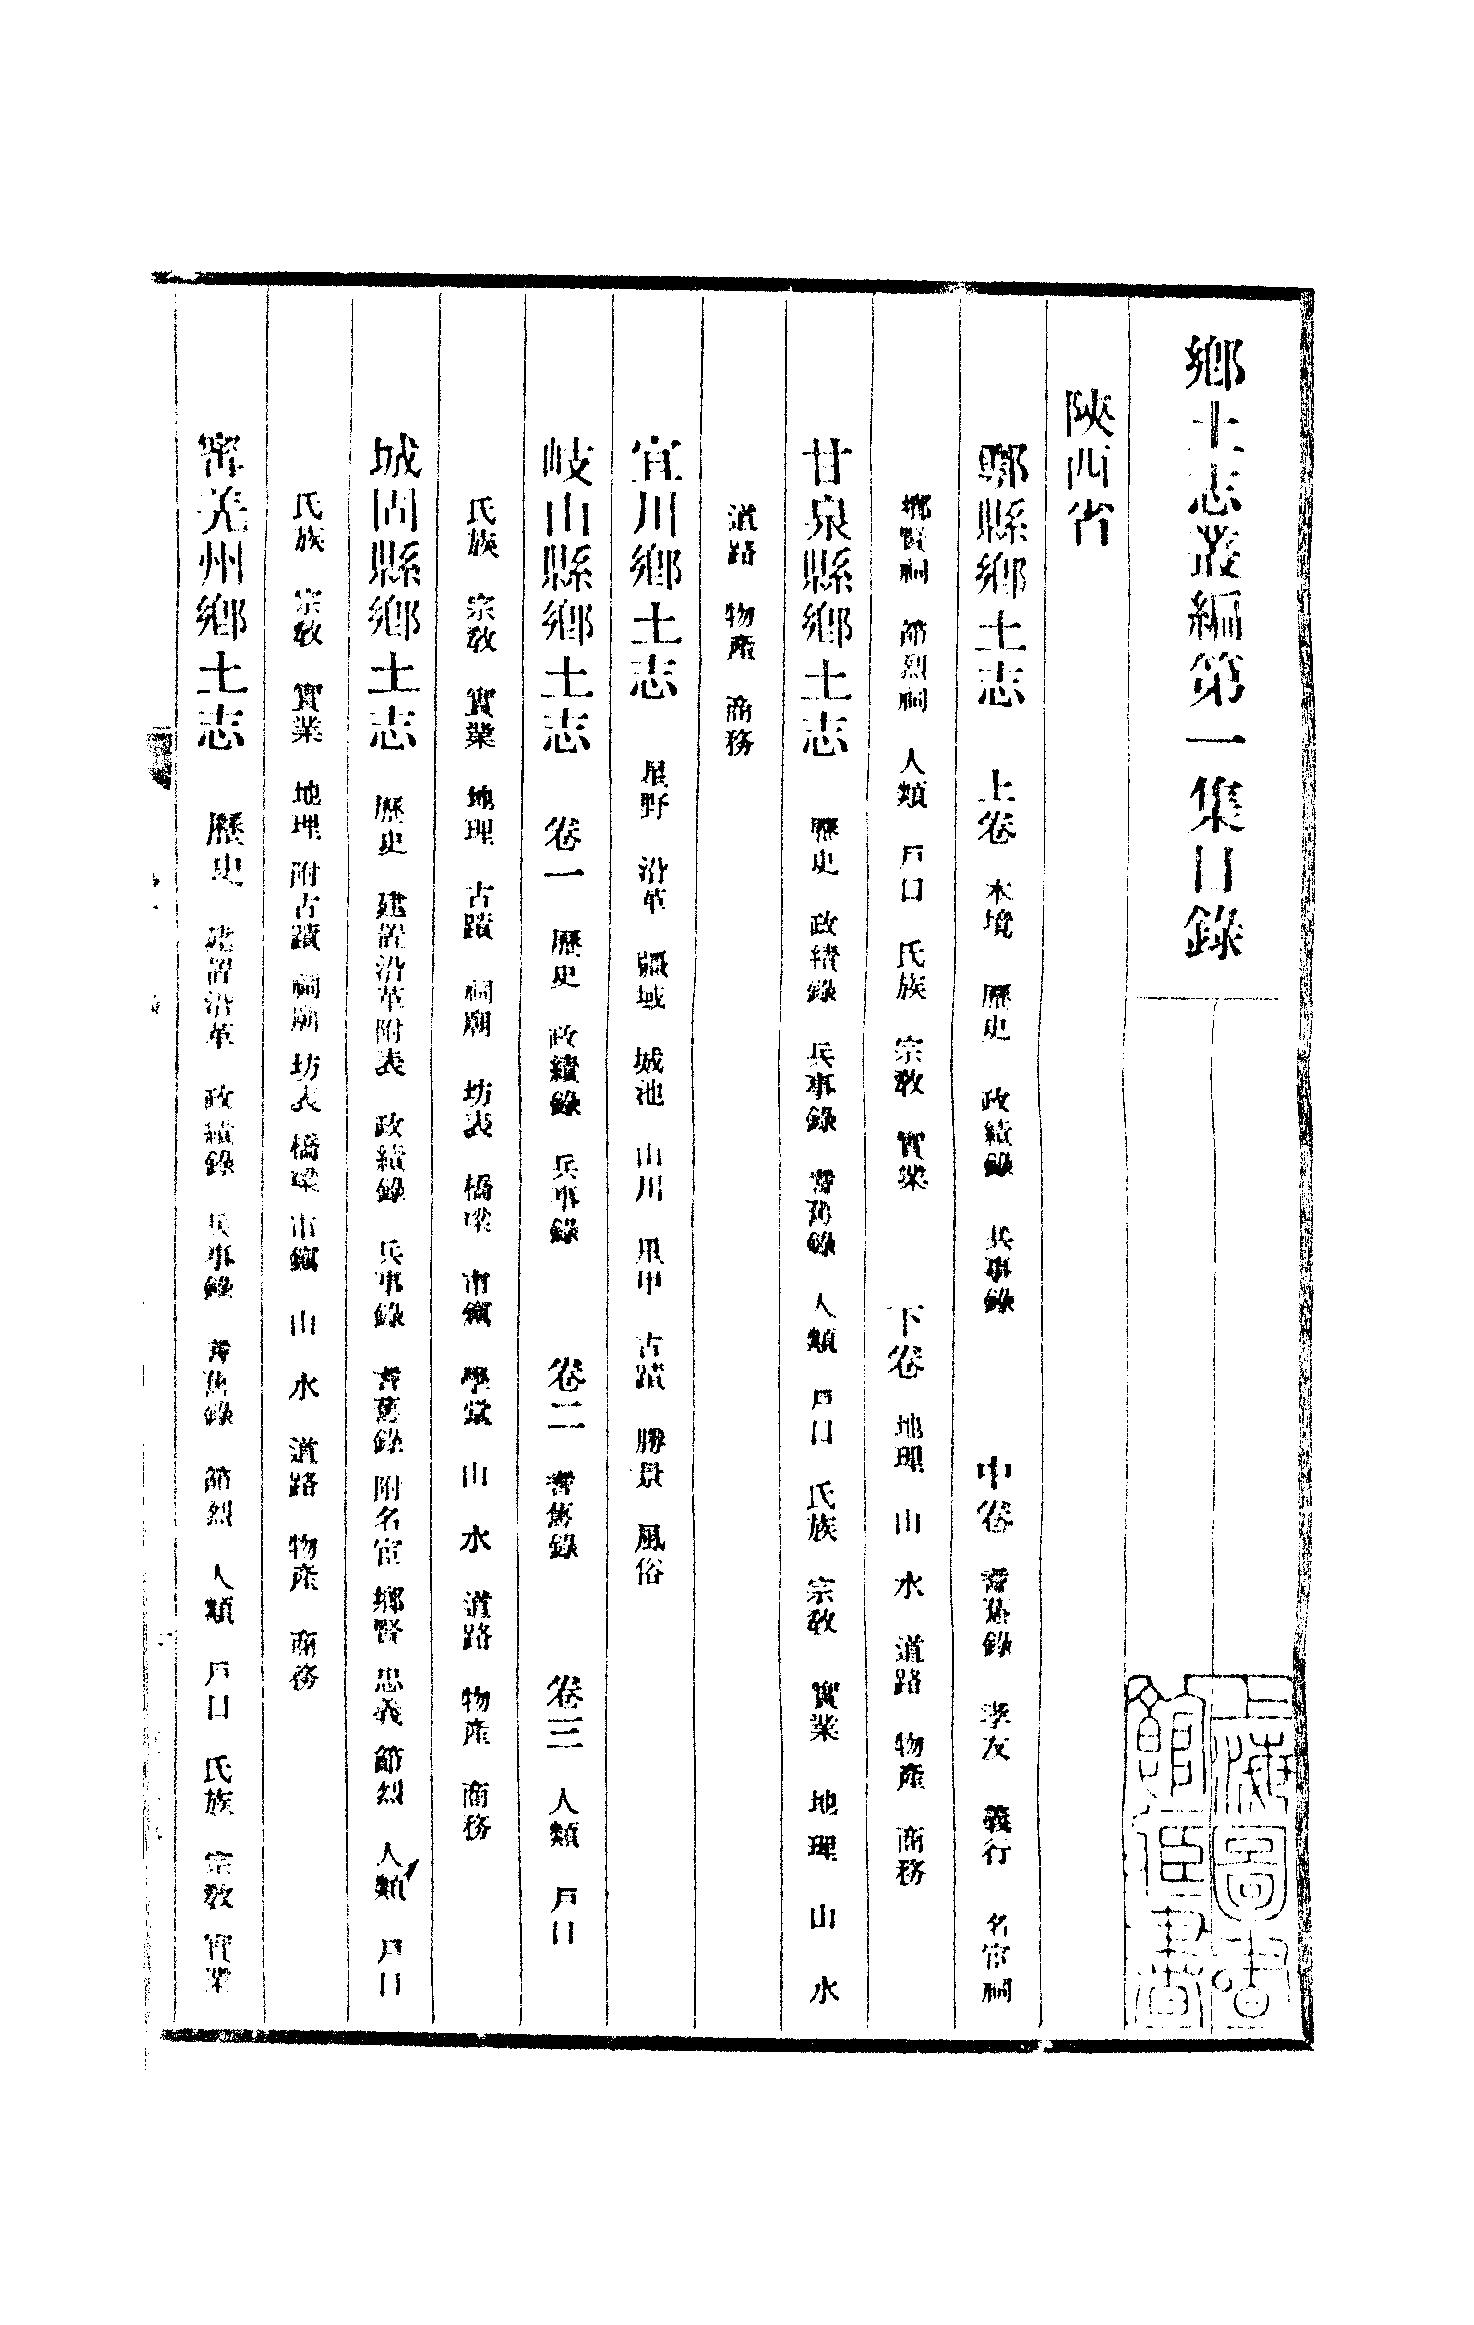 鄉土志叢編第一集目錄
陝西省
鄠縣鄉土志 上卷 本境 歷史 政績錄 兵事錄 中卷 耆舊錄 孝友 義行 名宦祠
鄉賢祠 節烈祠 人類 戶口 氏族 宗敎 實業 下卷 地理 山 水 道路 物產 商務
甘泉縣鄉土志 歷史 政績錄 兵事錄 耆舊錄 人類 戶口 氏族 宗敎 實業 地理 山 水
道路 物產 商務
宜川鄉土志 星野 沿革 疆域 城池 山川 里甲 古蹟 勝景 風俗
岐山縣鄉土志 卷一 歷史 政績錄 兵事錄 卷二 耆舊錄 卷三 人類 戶口
氏族 宗敎 實業 地理 古蹟 祠廟 坊表 橋梁 市鎮 學堂 山 水 道路 物產 商務
城固縣鄉土志 歷史 建置沿革附表 政績錄 兵事錄 耆舊錄 附名宦 鄉賢 忠義 節烈 人類 戶口
氏族 宗敎 實業 地理 附古蹟 祠廟 坊表 橋梁 市鎮 山 水 道路 物產 商務
甯羌州鄉土志 歷史 建置沿革 政績錄 兵事錄 耆舊錄 節烈 人類 戶口 氏族 宗敎 實業
上海圖書館藏書